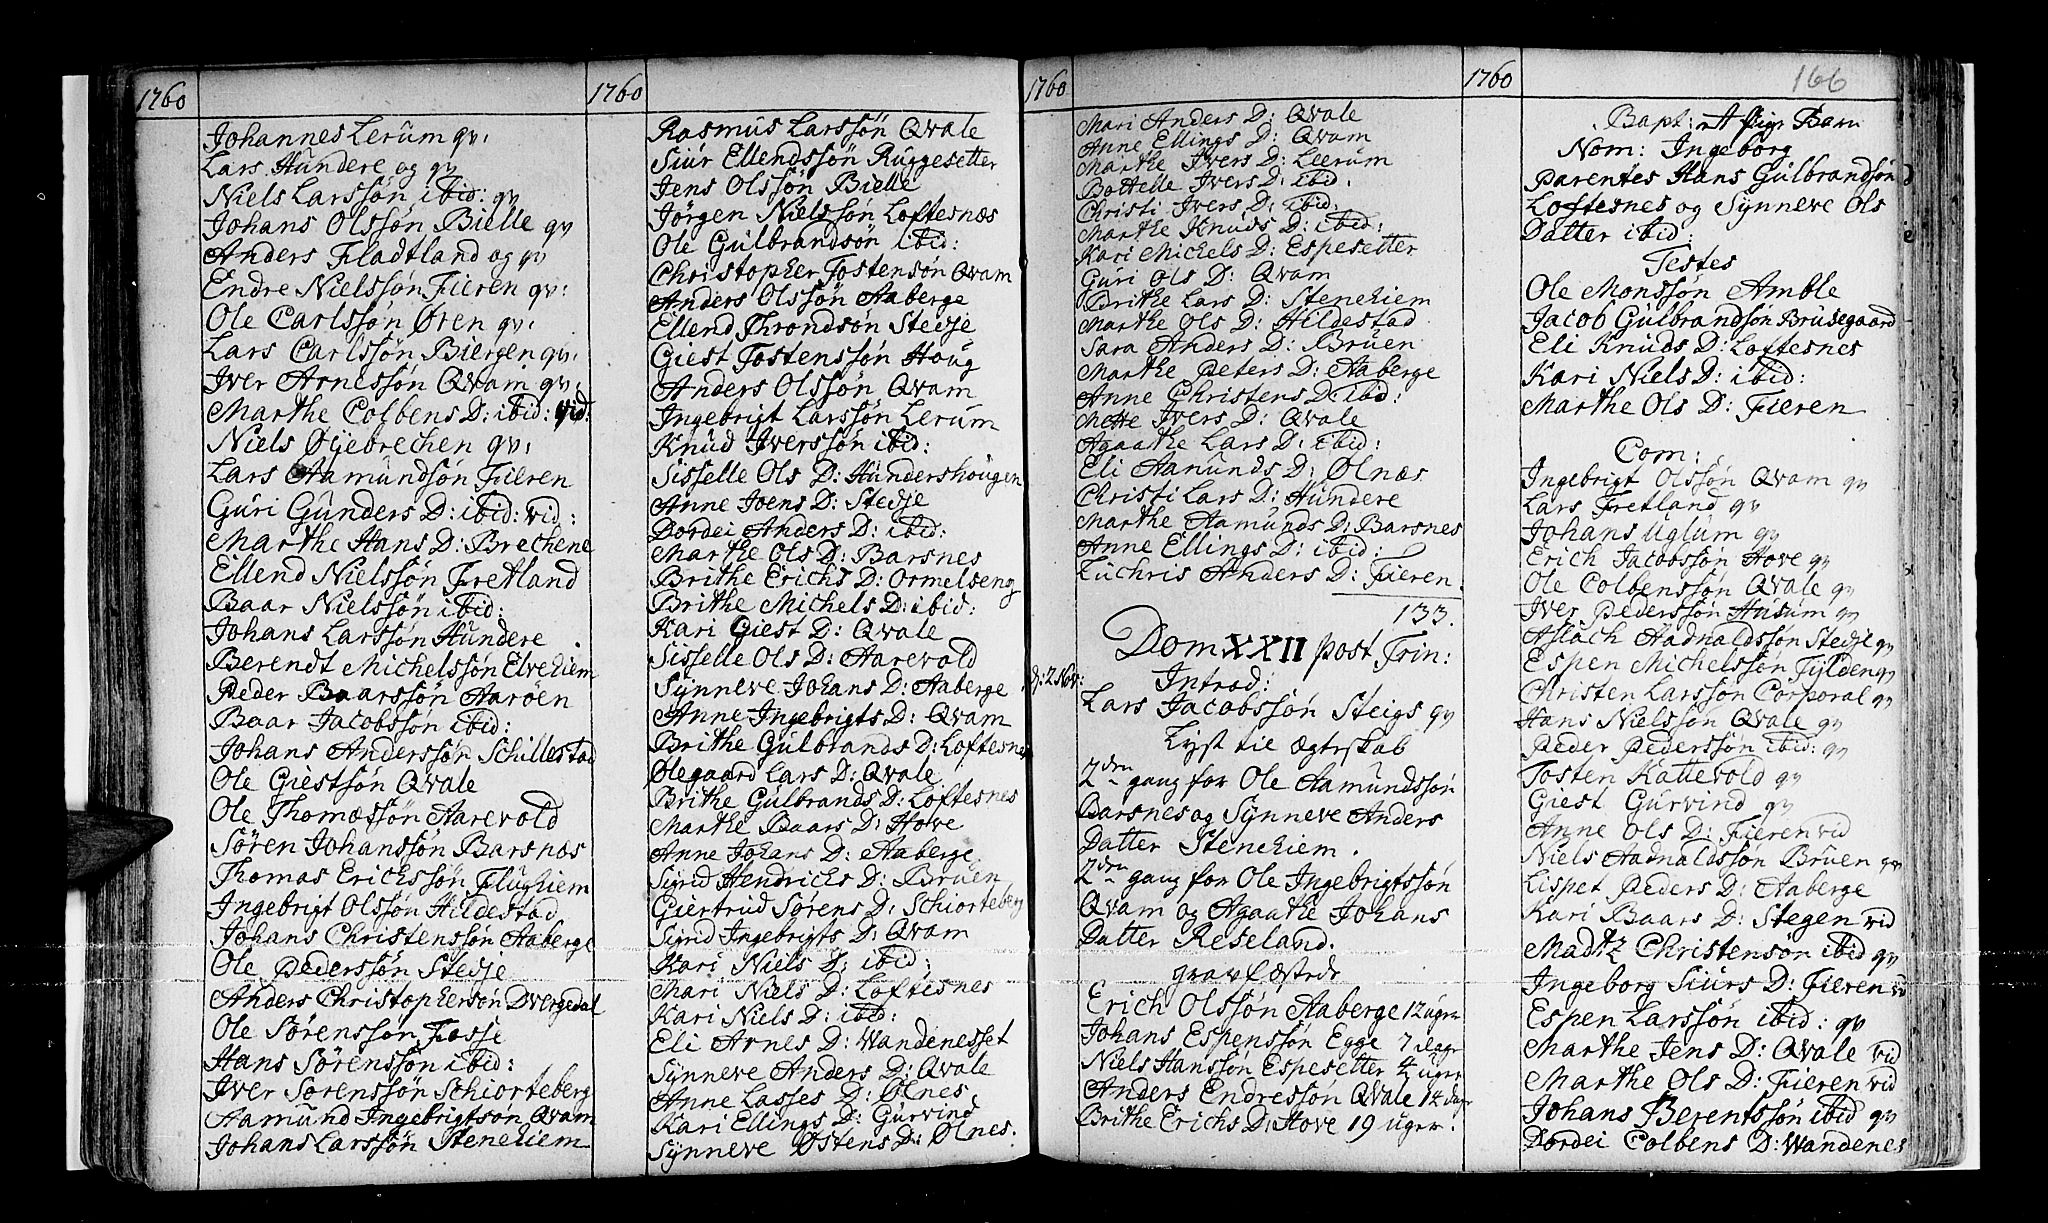 1760
Johannes Lerüm qv:
Lars Hündere og qv
Niels Larssøn ibid: qv
Johans Olssøn Bielle qv
Anders Fladtland og qv
Endre Nielssøn Fieren qv:
Ole Carlssøn Øren qv:
Lars Carlssøn Biergen qv:
Iver Arnessøn Qvam qv:
Marthe Colbens D: ibid: vid:
Niels Øyebrechen qv:
Lars Aamündsøn Fieren
Güri Günders D: ibid: vid:
Marthe Hans D: Brechene
Ellend Nielssøn Fretland
Baar Nielssøn ibid:
Johans Larssøn Hündere
Berendt Michelssøn Elvehiem
Peder Baarssøn Aarøen
Baar Jacobssøn ibid:
Johans Anderssøn Schillestad
Ole Giestsøn Qvale
Ole Thomæssøn Aarevold
Søren Johanssøn Barsnæs
Thomas Erichssøn Flüghiem
Ingebrigt Olssøn Hildestad
Johans Christenssøn Aaberge
Ole Pederssøn Stedje
Anders Christophersøn Dvergedal
Ole Sørenssøn Fosje
Hans Sørenssøn ibid:
Iver Sørenssøn Schiorteberg
Aamünd Ingebrigtsøn Qvam
Johans Larssøn Stenehiem
1760
Rasmus Larssøn Qvale
Siür Ellendssøn Rüggesetter
Jens Olssøn Bielle
Jörgen Nielssøn Loftesnæs
Ole Gülbrandsøn ibid:
Christopher Tostensøn Qvam
Anders Olssøn Aaberge
Ellend Throndsøn Stedje
Giest Tostenssøn Houg
Anders Olssøn Qvam
Ingebrigt Larssøn Lerüm
Knüd Iverssøn ibid:
Sisselle Ols D: Hündershougen
Anne Joens D: Stedje
Dordei Anders D: ibid:
Marthe Ols D: Barsnes
Brithe Erichs D: Ormelseng
Brithe Michels D: ibid:
Kari Giest D: Qvale
Sisselle Ols D: Aarevold
Synneve Johans D: Aaberge
Anne Ingebrigts D: Qvam
Brithe Gülbrands D: Loftesnes
Olegaard Lars D: Qvale
Brithe Gülbrands D: Loftesnes
Marthe Baars D: Hove
Anne Johans D: Aaberge
Sigrid Hendrichs D: Brüen
Giertrud Sørens D: Schiorteberg
Sigrid Ingebrigts D: Qvam
Kari Niels D: ibid:
Mari Niels D: Loftesnes
Kari Niels D: ibid:
Eli Arnes D: Wandenesset
Synneve Anders D: Qvale
Anne Lasses D: Ølnes
Kari Ellings D: Gürvind
Synneve Østens D: Ølnes.
1760
Mari Anders D: Qvale
Anne Ellings D: Qvam
Marthe Ivers D: Leerüm
Bottelle Ivers D: ibid.
Christi Ivers D: ibid:
Marthe Knüds D: ibid:
Kari Michels D: Espesetter
Güri Ols D: Qvam
Brithe Lars D: Stenehiem
Marthe Ols D: Hildestad
Sara Anders D: Brüen
Marthe Peters D: Aaberge
Anne Christens D: ibid:
Mette Ivers D: Qvale
Agaathe Lars D: ibid:
Eli Aamunds D: Ølnæs
Christi Lars D: Hündere
Marthe Aamunds D: Barsnes
Anne Ellings D: ibid:
Luchris Anders D: Fieren.
133.
Dom XXII post Trin:
d: 2 Nov:
Introd:
Lars Jacobssøn Steigs qv
Lyst til Ægteskab
2den gang for Ole Aamundssøn
Barsnes og Synneve Anders
Datter Stenehiem.
2den gang for Ole Ingebrigtssøn
Qvam og Agaathe Johans
Datter Reseland.
gravfæstede
Erich Olssøn Aaberge 12 uger
Johans Espenssøn Egge 7 dage
Niels Hanssøn Espesetter 4 uger
Anders Endressøn Qvale 14 dage
Brithe Erichs D: Hove 19 uger.
1760
166
Bapt: Barn
Nom: Ingeborg
Parentes Hans Gülbrandsøn
Loftesnes og Synneve Ols
Datter ibid:
Testes
Ole Monssøn Amble
Jacob Gülbrandsøn Brüsegaard
Eli Knüds D: Loftesnes
Kari Niels D: ibid:
Marthe Ols D: Fieren
Com:
Ingebrigt Olssøn Qvam qv
Lars Fretland qv
Johans Uglum qv
Erich Jacobssøn Hove qv
Ole Colbenssøn Qvale qv
Iver Pederssøn Husum qv
Aslach Aadnaldssøn Stedje qv
Espen Michelssøn Fylden qv
Christen Larssøn Corporal qv
Hans Nielssøn Qvale qv
Peder Pederssøn ibid: qv
Tosten Kattevold qv
Giest Gurvind qv
Anne Ols D: Fieren vid
Niels Aadnaldssøn Brüen qv
Lispet Peders D: Aaberge
Kari Baars D: Stegen vid
Madtz Christensøn ibid qv
Ingeborg Siurs D: Fieren vid
Espen Larssøn ibid: qv
Marthe Jens D: Qvale vid
Marthe Ols D: Fieren vid
Johans Berentssøn ibid qv
Dordei Colbens D: Wandenes